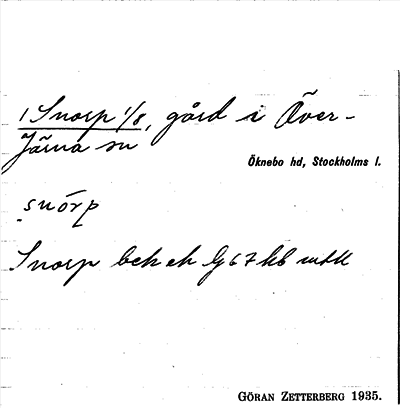 1 Snorp 1/8, gård i Över-
Järna sn
Öknebo hd, Stockholms l.
snórp
Snorp bck ek lg 67 kb
GÖRAN ZETTERBERG 1935.